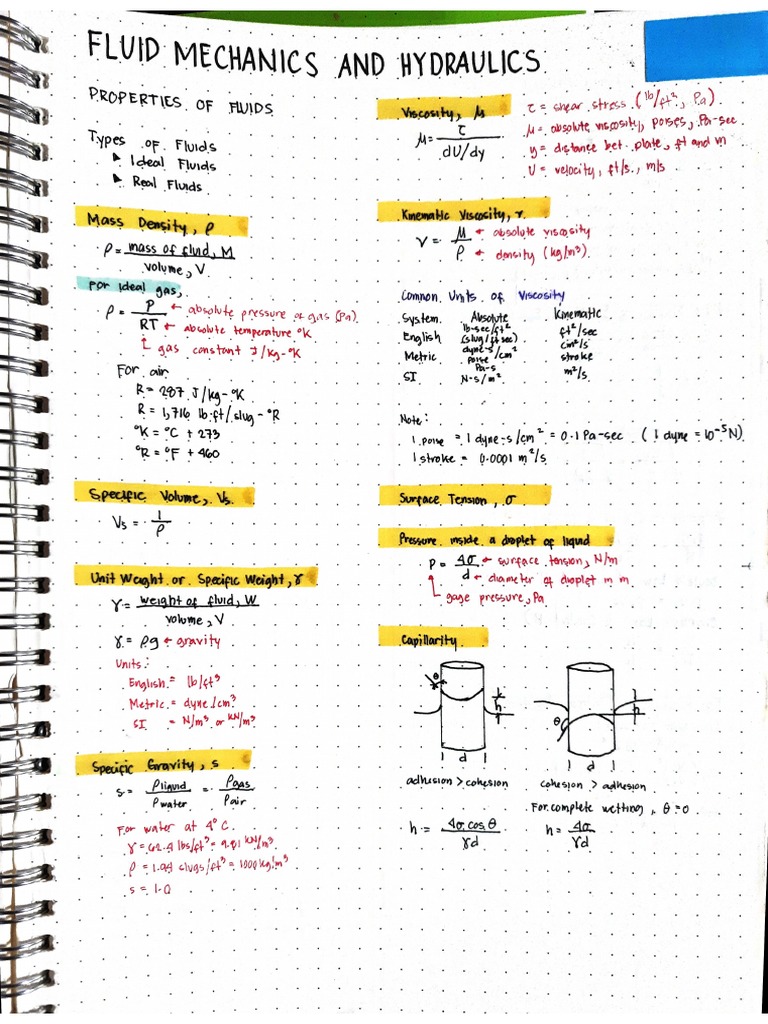 FLUID MECHANICS AND HYDRAULICS
PROPERTIES OF FLUIDS
Types of Fluids
▶ Ideal Fluids
▶ Real Fluids
Mass Density, ρ
ρ = mass of fluid, M / volume, V
For Ideal gas,
ρ = P / RT
← absolute pressure of gas (Pa)
← absolute temperature °K
gas constant J/kg-°K
For air
R = 287 J/kg-°K
R = 1,716 lb·ft/slug-°R
°K = °C + 273
°R = °F + 460
Specific Volume, Vs
Vs = 1 / ρ
Unit Weight or Specific Weight, γ
γ = weight of fluid, W / volume, V
γ = ρg ← gravity
Units:
English = lb/ft³
Metric = dyne/cm³
SI = N/m³ or kN/m³
Specific Gravity, s
s = ρliquid / ρwater = ρgas / ρair
For water at 4°C
γ = 62.4 lbs/ft³ = 9.81 kN/m³
ρ = 1.94 slugs/ft³ = 1000 kg/m³
s = 1.0
Viscosity, μ
μ = τ / dU/dy
τ = shear stress (lb/ft², Pa)
μ = absolute viscosity, poises, Pa-sec
y = distance bet. plate, ft and m
U = velocity, ft/s, m/s
Kinematic Viscosity, ν
ν = μ / ρ
← absolute viscosity
← density (kg/m³)
Common Units of Viscosity
System Absolute Kinematic
English lb-sec/ft² (slug/ft sec) ft²/sec
Metric dyne-s/cm² poise cm²/s stroke
SI Pa-s N-s/m² m²/s
Note:
1 poise = 1 dyne-s/cm² = 0.1 Pa-sec (1 dyne = 10⁻⁵ N)
1 stroke = 0.0001 m²/s
Surface Tension, σ
Pressure inside a droplet of liquid
P = 4σ / d
← surface tension, N/m
← diameter of droplet in m
gage pressure, Pa
Capillarity
θ
h
d
adhesion > cohesion
h = 4σ cos θ / γd
θ
h
d
cohesion > adhesion
For complete wetting, θ = 0
h = 4σ / γd